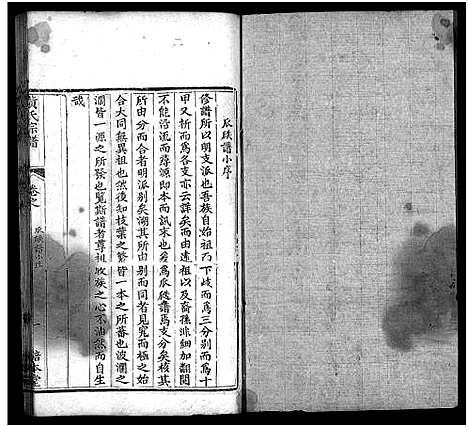 瓜瓞譜小序
修譜所以明支派也吾族自始祖丙下歧而為三分別為十
甲又析而為各支亦云詳矣而由遠祖以及裔孫非細加翻閱
不能沿流而尋源即本而訊末也茲為瓜瓞譜為支分矣核其
所由分而合者明派別矣溯其所自別而同者見究而極之始
合大同無異祖也然後知枝葉之繁皆一本之所蕃也波瀾之
瀾皆一源之所瀰也覽斯譜者尊祖收族之心不油然而自生
哉
黃氏宗譜
卷之
瓜瓞譜小序
一
敦本堂